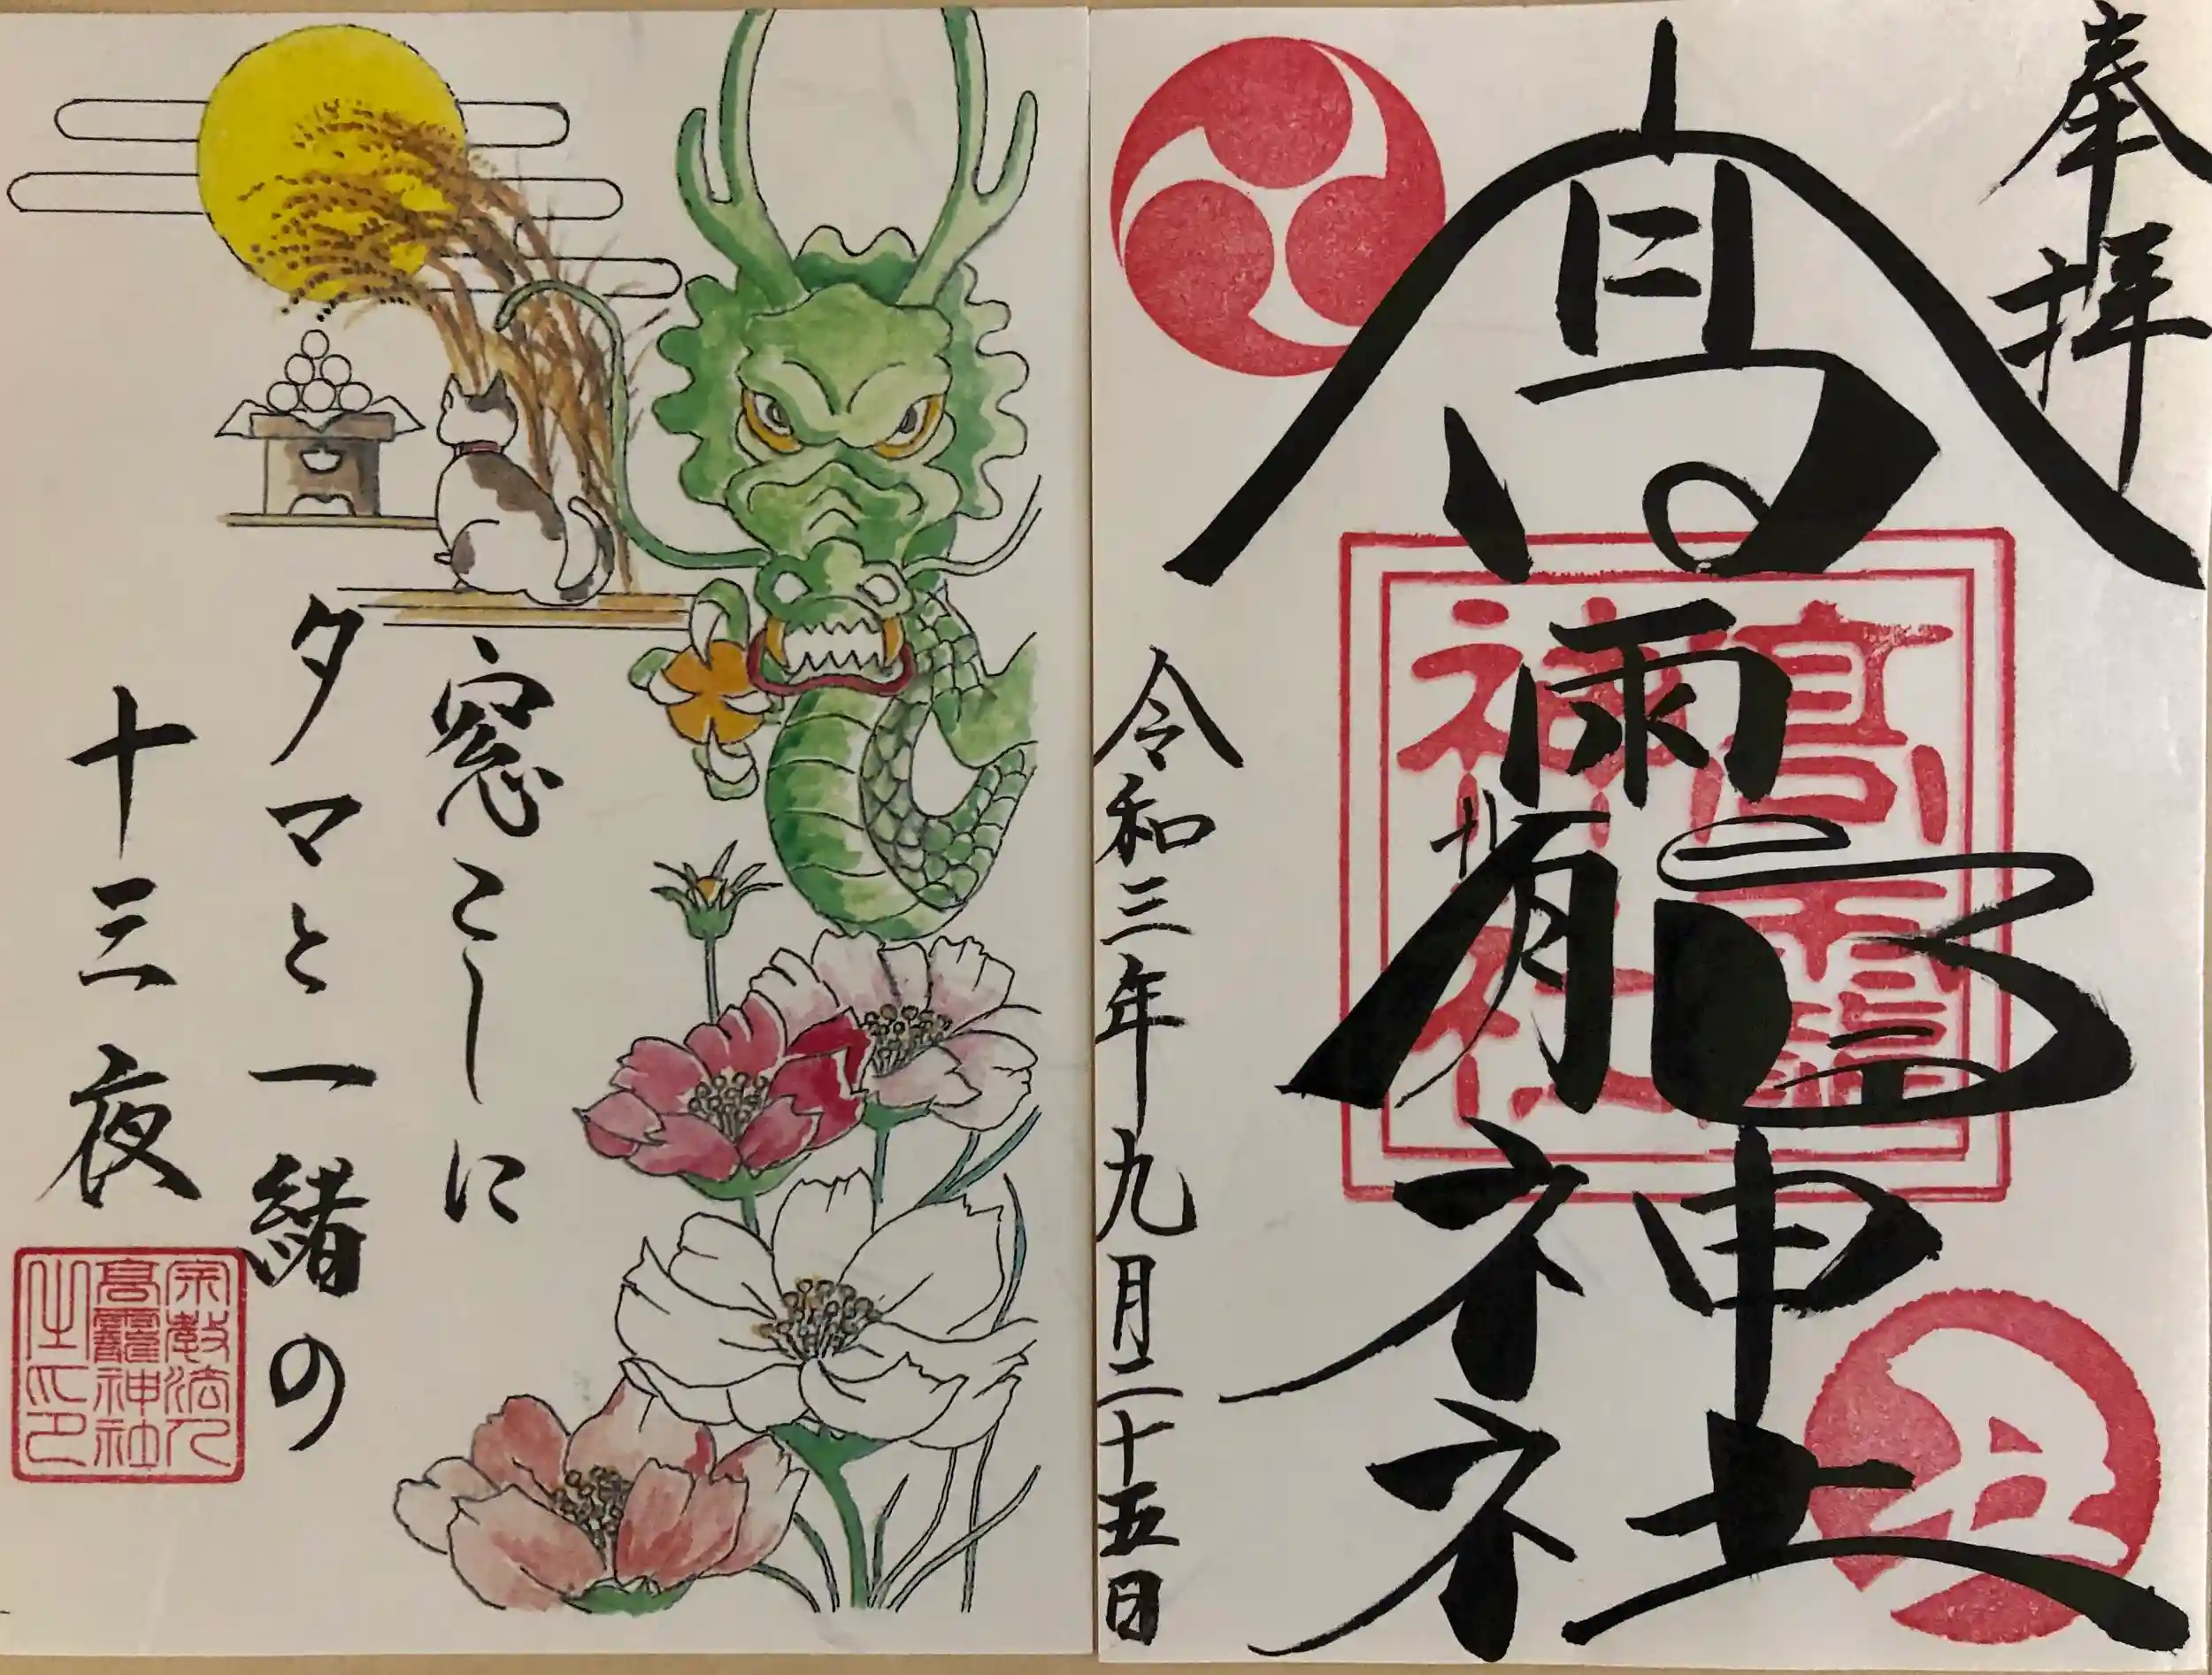 奉拝
高龗神社
高龗神社
丑
令和三年九月二十五日
窓こしに
タマと一緒の
十三夜
宗教法人
高龗神社
之印